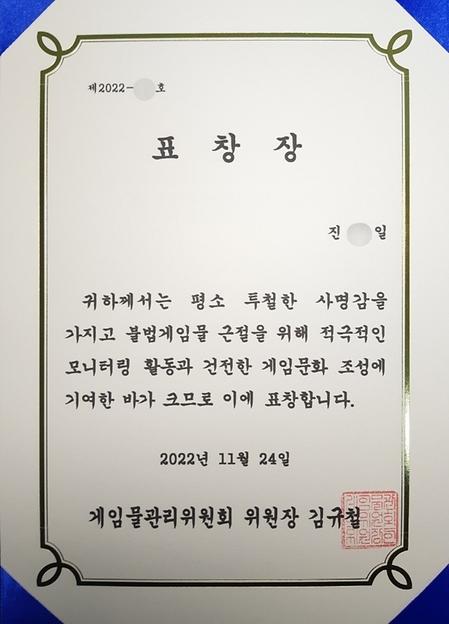 제2022- 호
표 창 장
진 일
귀하께서는 평소 투철한 사명감을
가지고 불법게임물 근절을 위해 적극적인
모니터링 활동과 건전한 게임문화 조성에
기여한 바가 크므로 이에 표창합니다.
2022년 11월 24일
게임물관리위원회 위원장 김규철